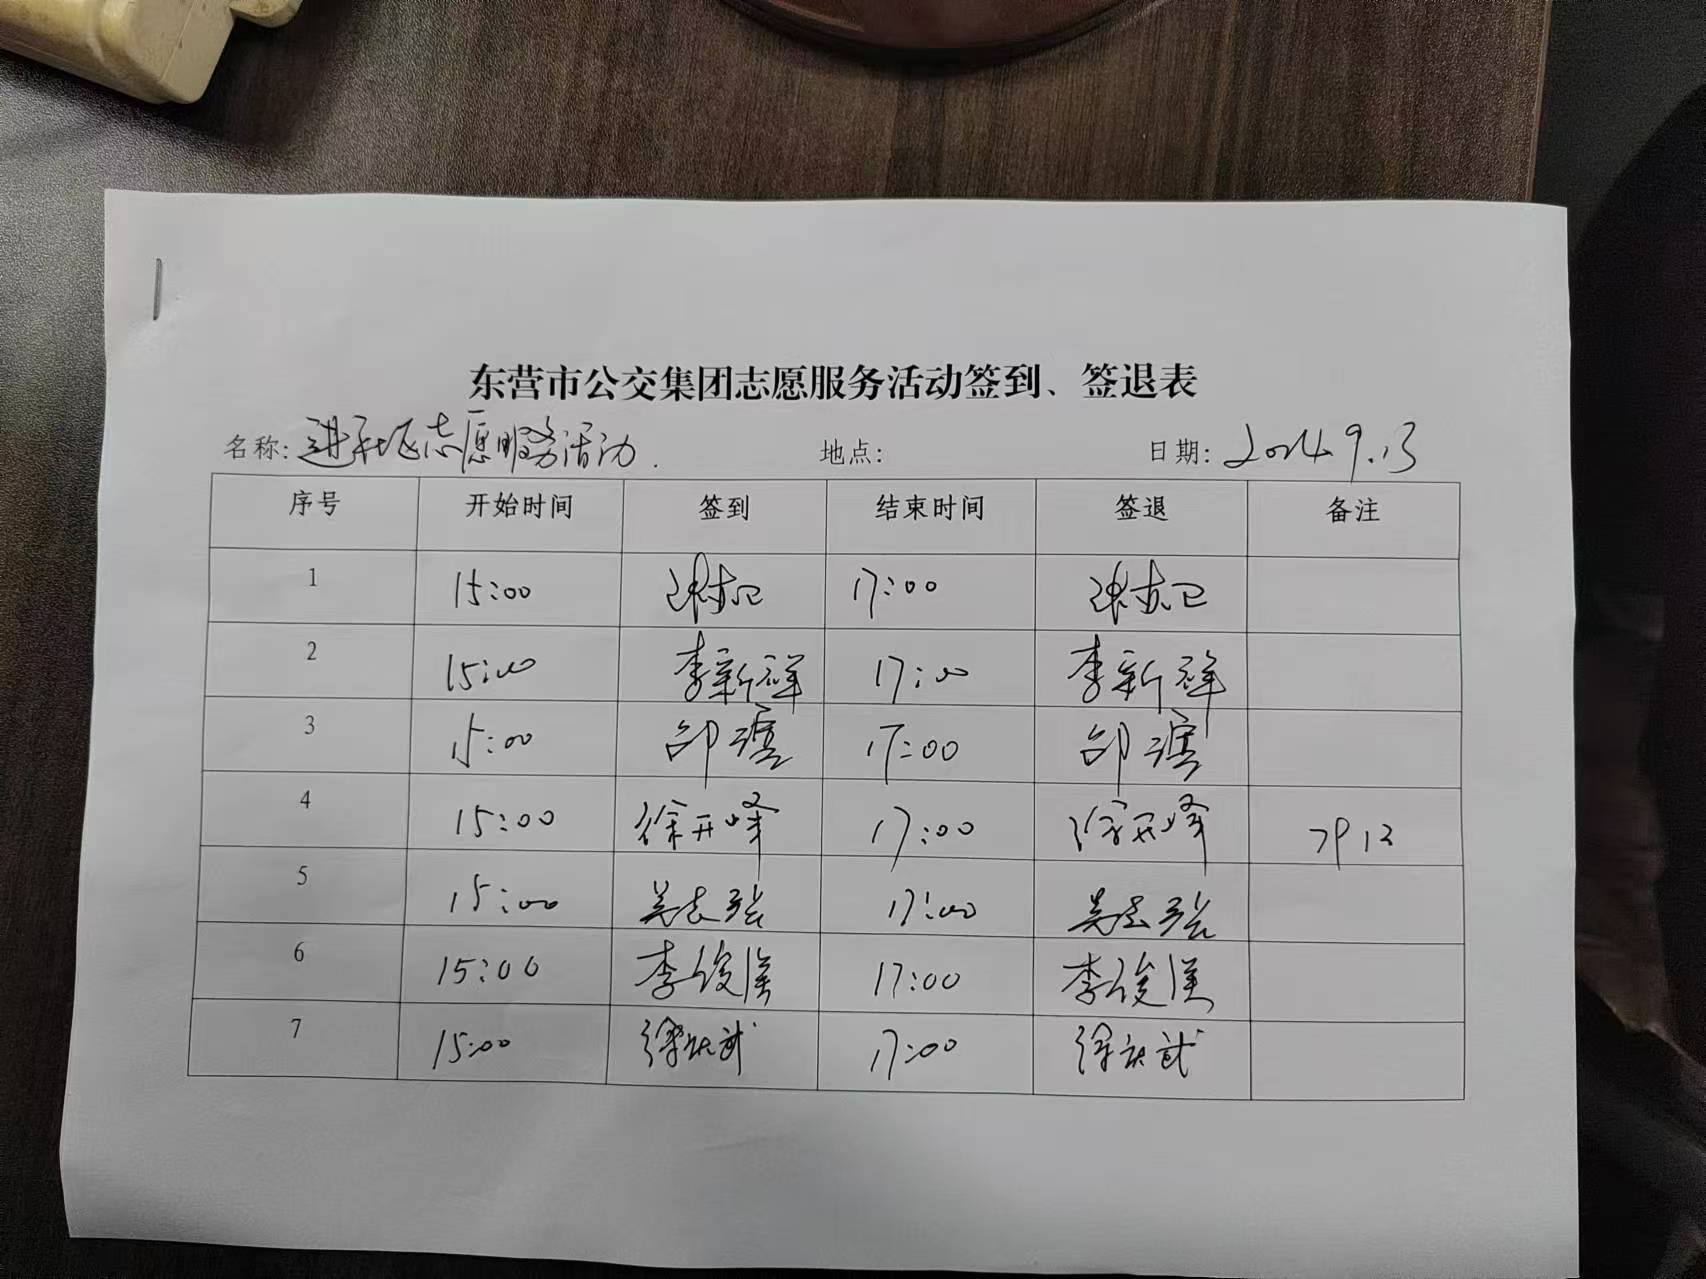 东营市公交集团志愿服务活动签到、签退表
名称: 进社区志愿服务活动. 地点: 日期: 2024.9.13
序号 开始时间 签到 结束时间 签退 备注
1 15:00 17:00
2 15:00 李新祥 17:00 李新祥
3 15:00 邵滨 17:00 邵滨
4 15:00 徐开峰 17:00 徐开峰
5 15:00 吴志强 17:00 吴志强
6 15:00 李俊漢 17:00 李俊漢
7 15:00 17:00